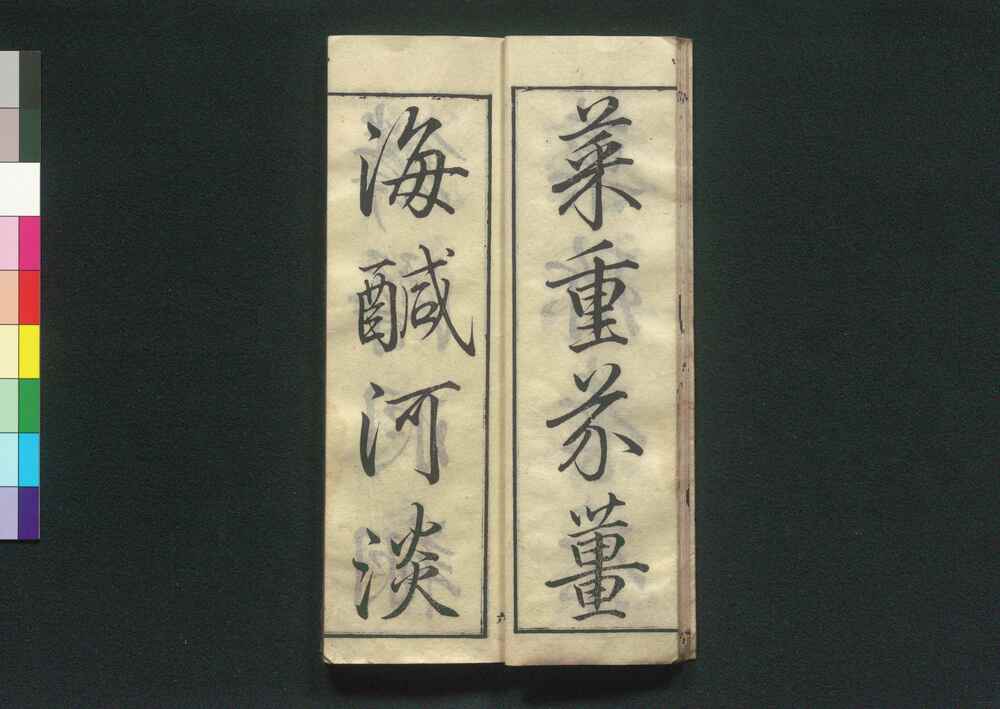 菜重芥薑
海鹹河淡